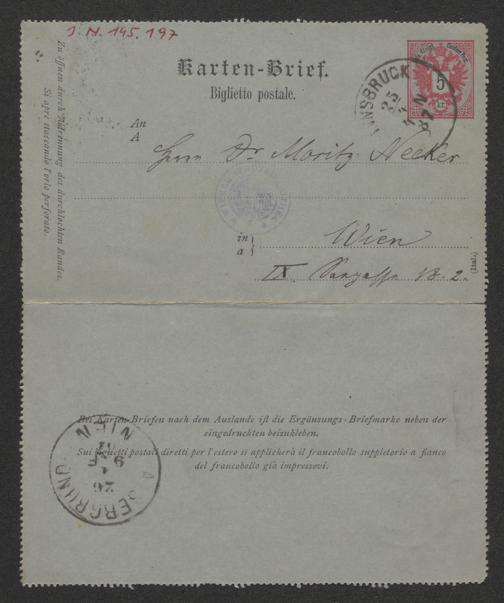 J. N. 145.197
Karten-Brief.
Biglietto postale.
5
kr.
INNSBRUCK
25
An
A
Herrn Dr Moritz Necker
in
a
Wien
IX 13. 2.
Zu öffnen durch Abtrennung des durchlochten Randes.
Si apre staccando l'orlo perforato.
Bei Karten-Briefen nach dem Auslande ist die Ergänzungs-Briefmarke neben der
eingedruckten beizukleben.
Sui biglietti postali diretti per l'estero si applicherà il francobollo suppletorio a fianco
del francobollo già impressovi.
WIEN
ALSERGRUND
26